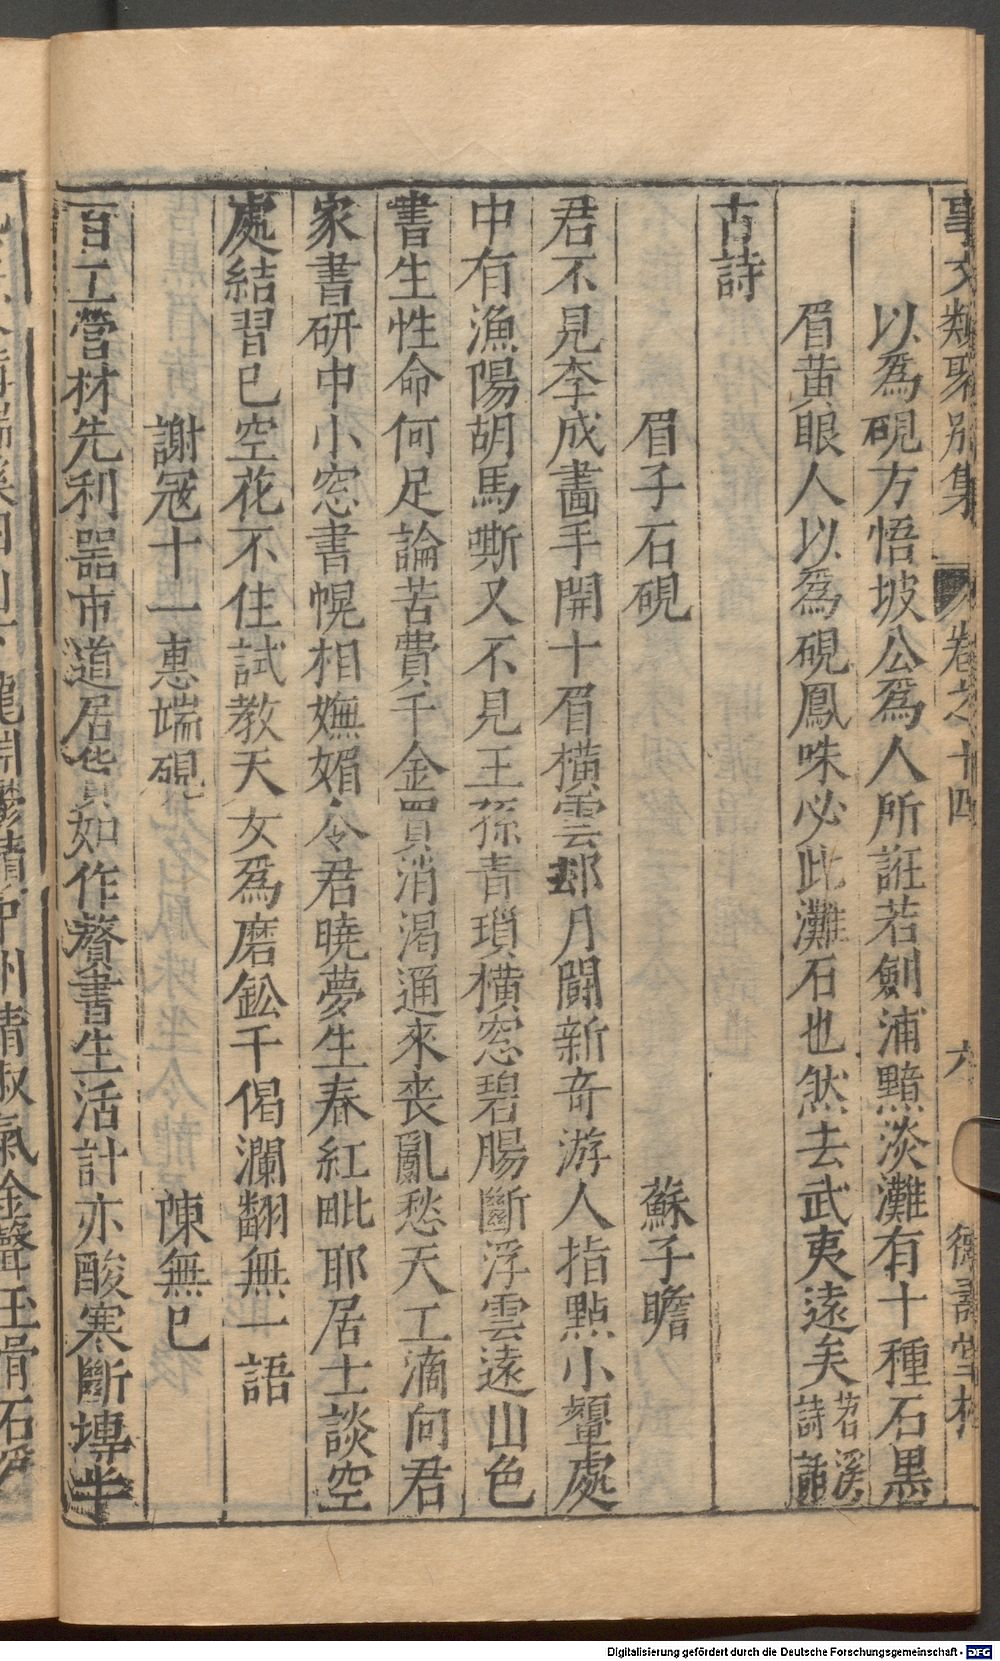 事文類聚別集 卷之十四 六
以爲硯方悟坡公爲人所誑若劍浦黯淡灘有十種石黑
眉黃眼人以爲硯鳳咮必此灘石也然去武夷遠矣苕溪詩話
古詩
眉子石硯 蘇子瞻
君不見李成畵手開十眉橫雲却月鬪新奇游人指點小顰處
中有漁陽胡馬嘶又不見王孫青瑣橫窓碧腸斷浮雲遠山色
書生性命何足論苦費千金買消渴邇來喪亂愁天工滴向君
家書研中小窓書幌相嫵媚令君曉夢生春紅毗耶居士談空
處結習已空花不住試教天女爲磨鈆千偈瀾翻無一語
謝寇十一惠端硯 陳無已
百工營材先利器市道居貨如作贅書生活計亦酸寒斷塼半
Digitalisierung gefördert durch die Deutsche Forschungsgemeinschaft - DFG